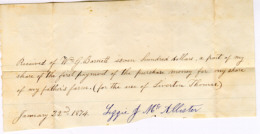 Received of Wm. G. Barnett seven hundred dollars a part of my
share of the first payment of the purchase money for my share
of my father's farm (for the use of Livinston Thomas)
January 22nd 1874. Lizzie J. McAllister